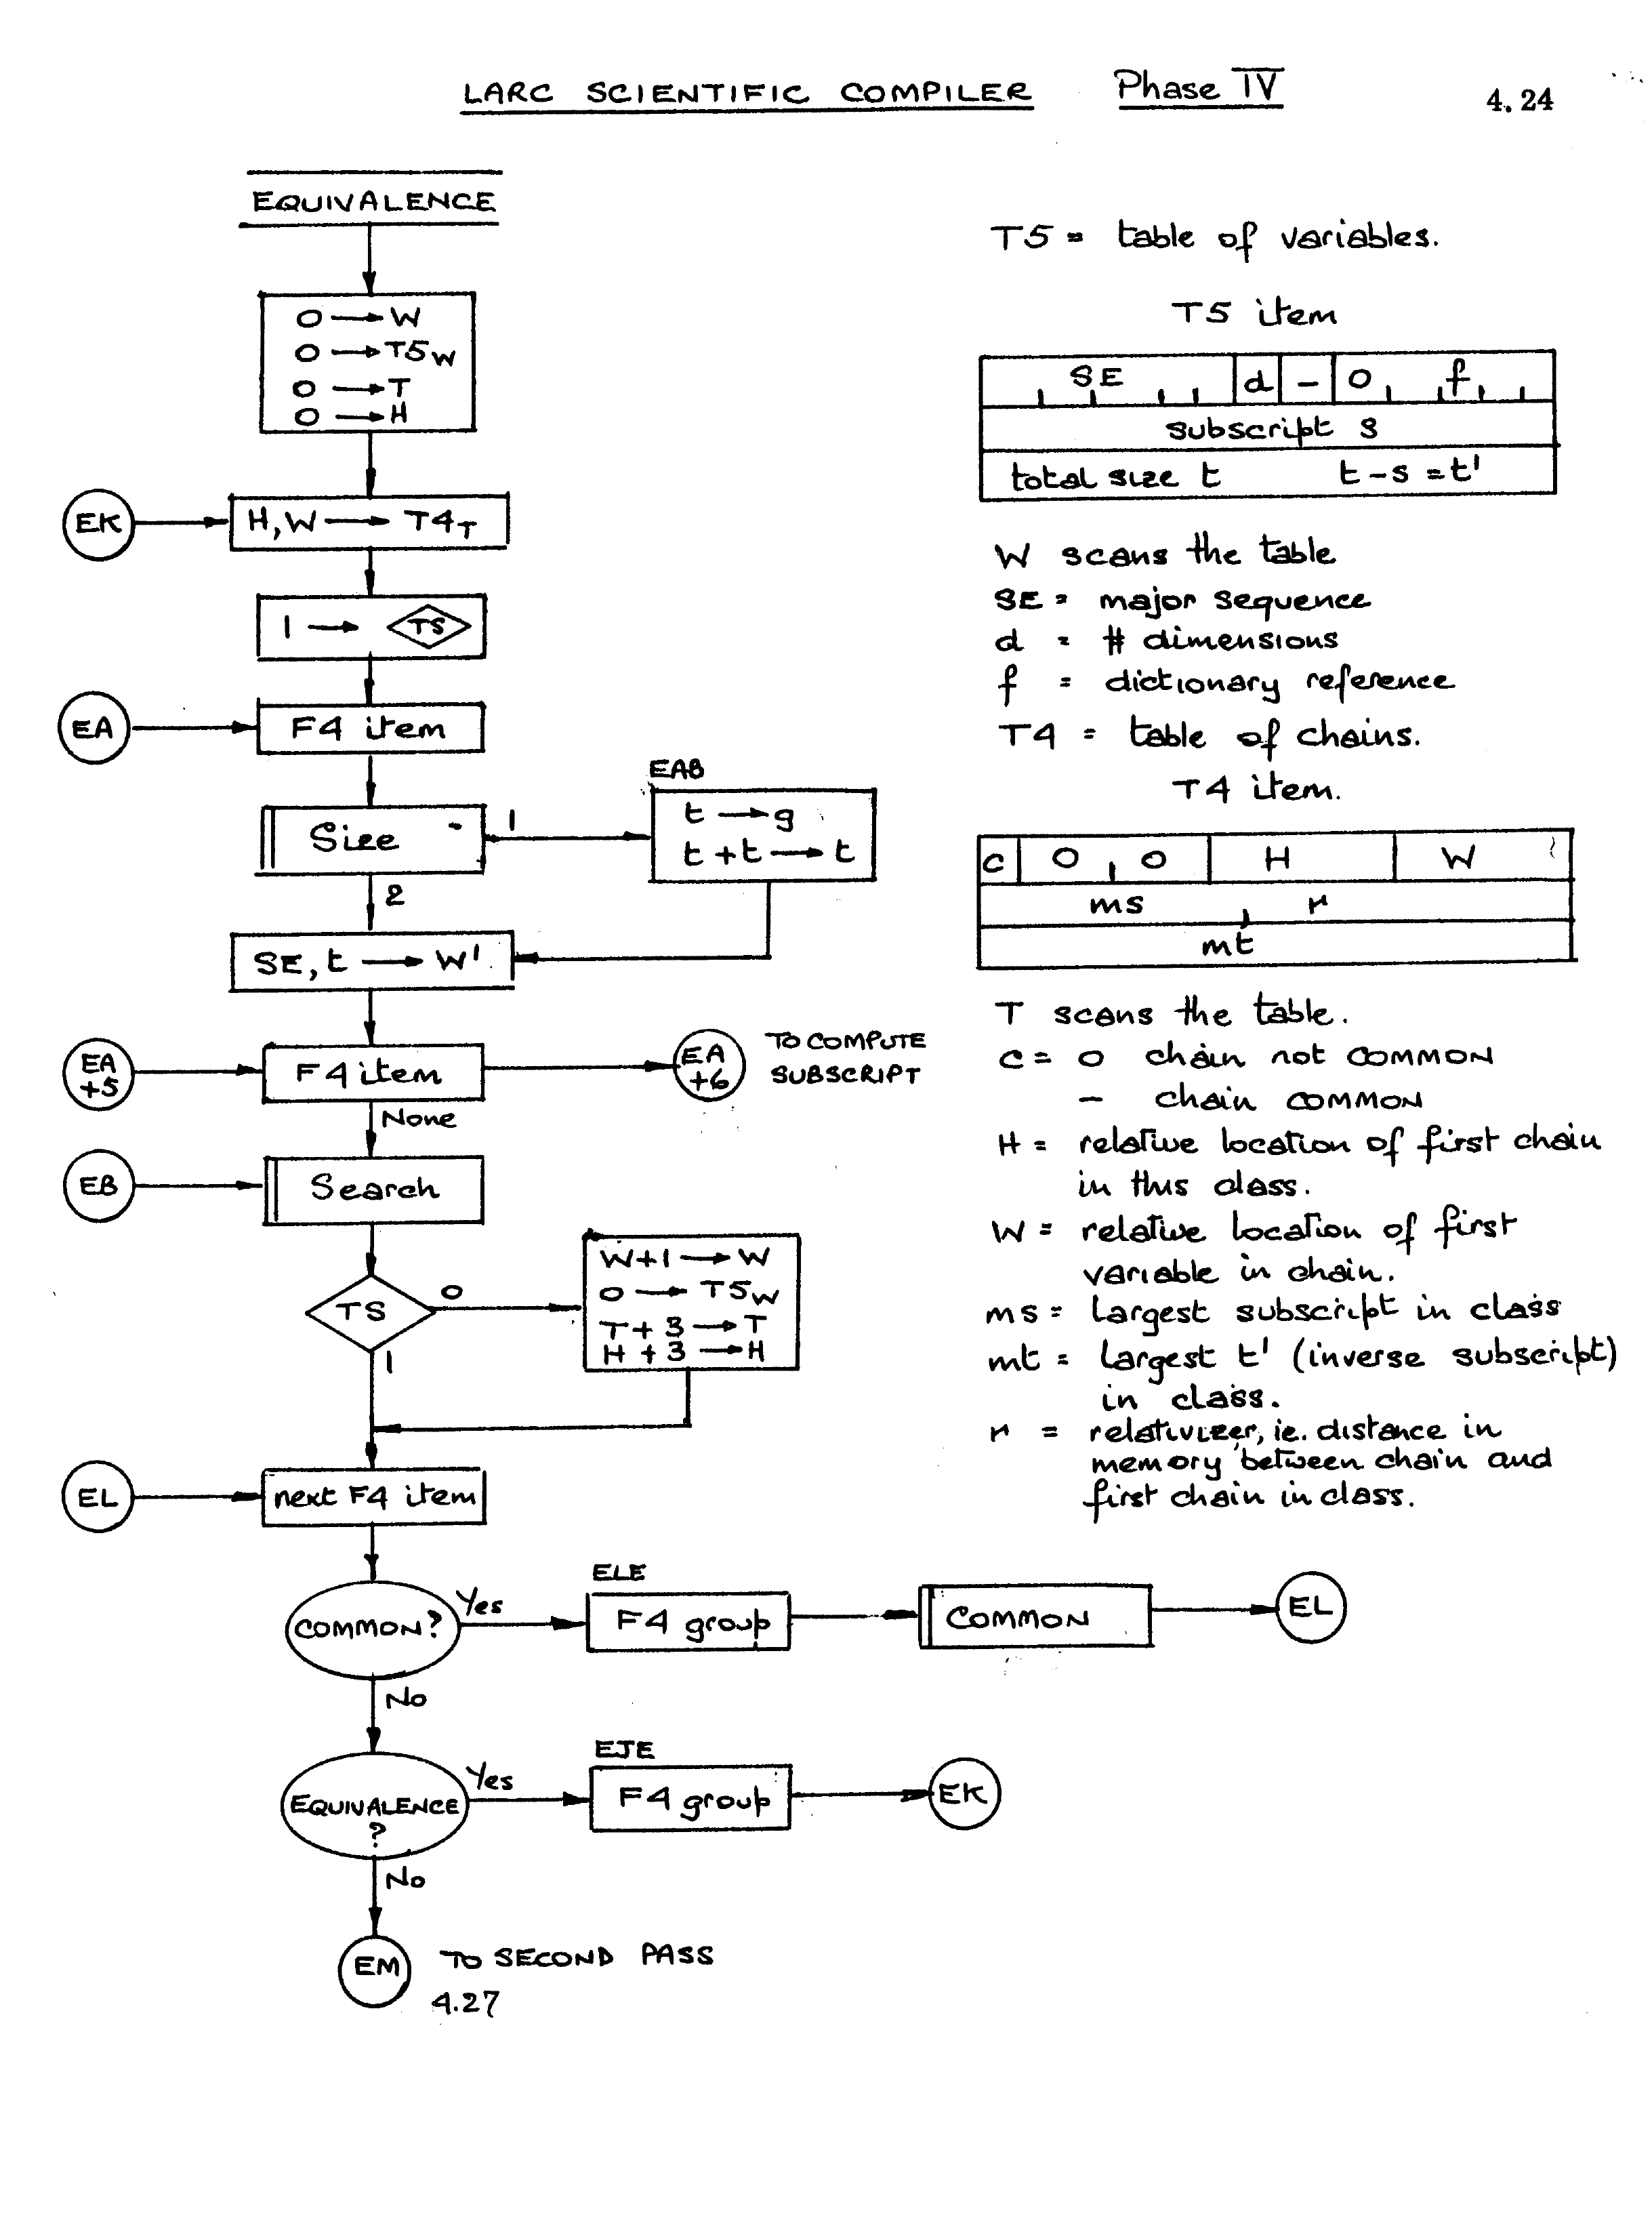 LARC SCIENTIFIC COMPILER Phase IV 4.24
EQUIVALENCE
0 → W
0 → T5W
0 → T
0 → H
EK
H, W → T4T
1 → TS
EA
F4 item
Size
1
2
EAB
t → g
t + t → t
SE, t → W'
EA +5
F4 item
EA +6
TO COMPUTE
SUBSCRIPT
None
EB
Search
TS
0
1
W+1 → W
0 → T5W
T + 3 → T
H + 3 → H
EL
next F4 item
COMMON?
Yes
ELE
F4 group
COMMON
EL
No
EQUIVALENCE
?
Yes
EJE
F4 group
EK
No
EM
TO SECOND PASS
4.27
T5 = table of variables.
T5 item
SE d - 0 f
subscript s
total size t t - s = t'
W scans the table
SE = major sequence
d = # dimensions
f = dictionary reference
T4 = table of chains.
T4 item.
c 0, 0 H W
ms, r
mt
T scans the table.
c = 0 chain not COMMON
- chain COMMON
H = relative location of first chain
in this class.
W = relative location of first
variable in chain.
ms = largest subscript in class
mt = largest t' (inverse subscript)
in class.
r = relativizer, ie. distance in
memory between chain and
first chain in class.